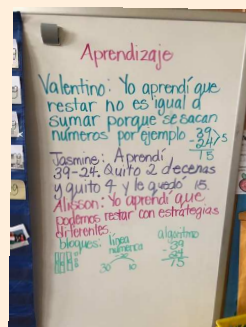 Aprendizaje
Valentino: Yo aprendí que
restar no es igual a
sumar porque se sacan
números por ejemplo 39
-24 5
15
Jasmine: Aprendí
39-24. Quito 2 decenas
y quito 4 y le quedo 15.
Alisson: Yo aprendí que
podemos restar con estrategias
diferentes.
bloques: línea números algoritmo
39
- 24
15
30 10